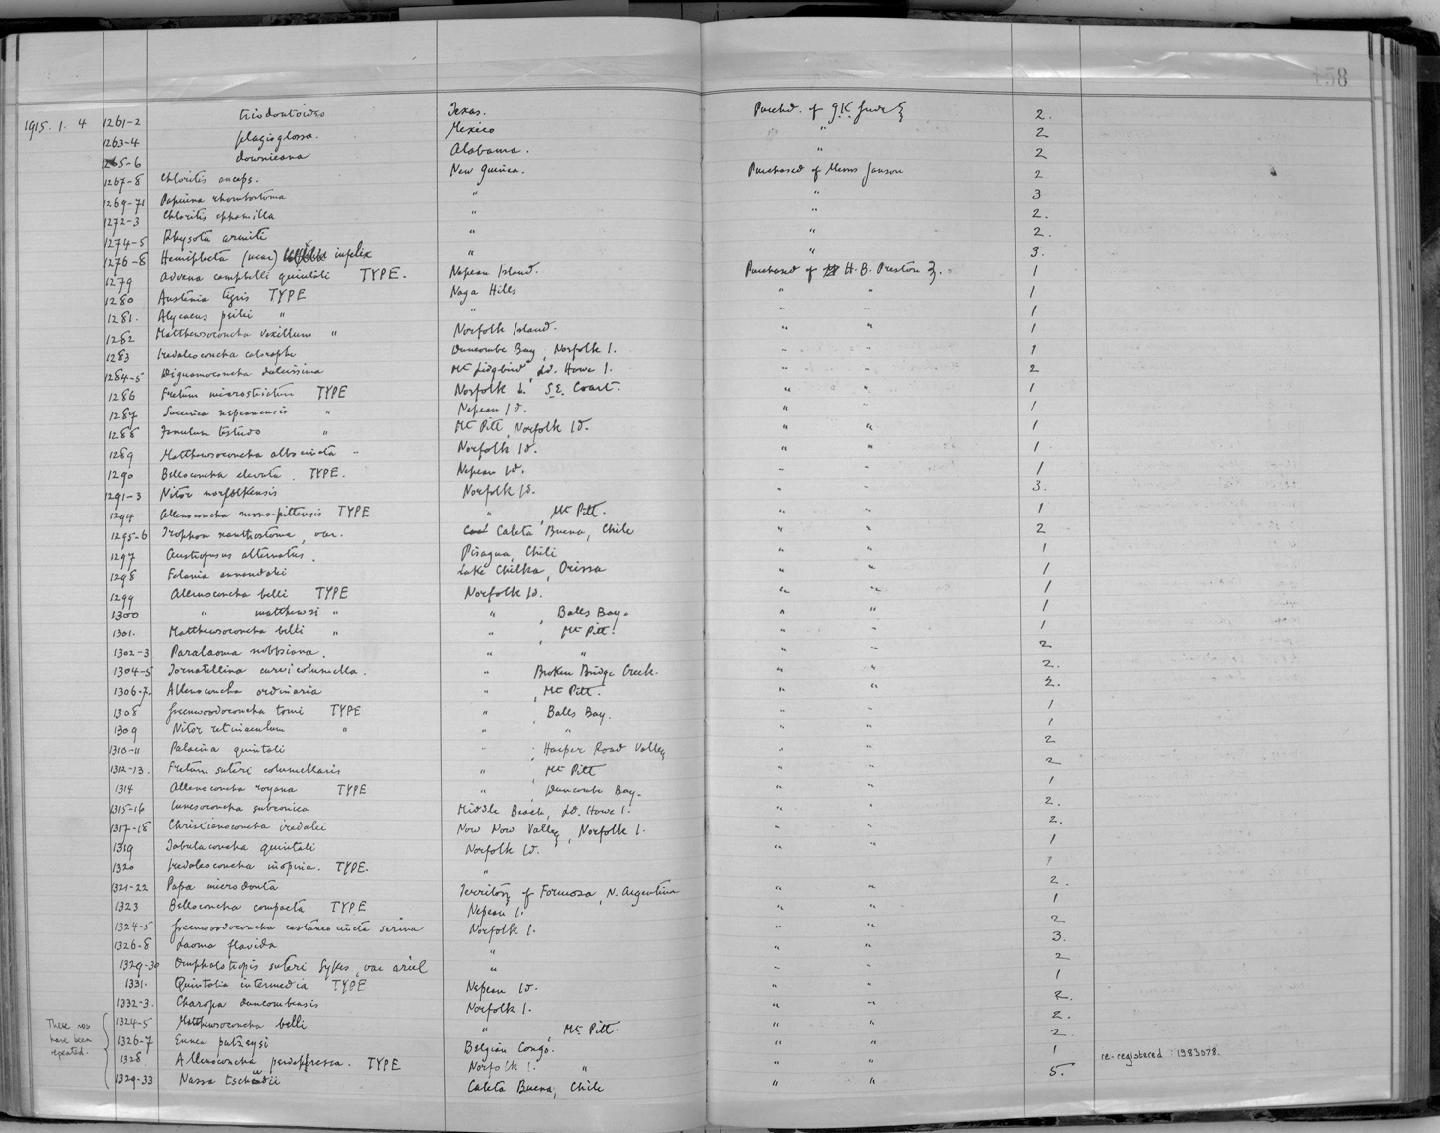 158
1915. 1. 4 1261-2 triodontoides Texas. Purchd. of G.K. Gude 2.
1263-4 plagioglossa. Mexico " 2
1265-6 downieana Alabama. " 2
1267-8 Chloritis anceps. New Guinea. Purchased of Messrs Janson 2
1269-71 Papuina rhombostoma " " 3
1272-3 Chloritis ephamilla " " 2.
1274-5 Rhysota armiti " " 2.
1276-8 Hemiplecta (near) infelix " " 3.
1279 Advena campbelli quintali TYPE. Nepean Island. Purchased of H. B. Preston 1
1280 Austenia tigris TYPE Naga Hills " " 1
1281. Alycaeus " " " " 1
1282 Matthewsoconcha vexillum " Norfolk Island. " " 1
1283 Iredaleoconcha caloraphe Duncombe Bay, Norfolk I. " " 1
1284-5 Dignamoconcha dulcissima Mt Lidgbird, Ld. Howe I. " " 2
1286 Fretum microstictum TYPE Norfolk I. S.E. Coast. " " 1
1287 Succinea nepeanensis " Nepean Id. " " 1
1288 Fanulum testudo " Mt Pitt, Norfolk Id. " " 1
1289 Matthewsoconcha albocincta " Norfolk Id. " " 1
1290 Belloconcha elevata. TYPE. Nepean Id. " " 1
1291-3 Nitor norfolkensis Norfolk Id. " " 3.
1294 Allenoconcha mono-pittensis TYPE " , Mt Pitt. " " 1
1295-6 Trophon xanthostoma, var. Caleta Buena, Chile " " 2
1297 Austropusus alternatus. Pisagua, Chili " " 1
1298 Felania annandalei Lake Chilka, Orissa " " 1
1299 Allenoconcha belli TYPE Norfolk Id. " " 1
1300 " matthewsi " " , Balls Bay. " " 1
1301. Matthewsoconcha belli " " , Mt Pitt. " " 1
1302-3 Paralaoma nobbsiana. " " " " 2
1304-5 Tornatellina curvicolumella. " Broken Bridge Creek. " " 2.
1306-7. Allenoconcha ordinaria " , Mt Pitt. " " 2.
1308 Greenwoodoconcha tomi TYPE " , Balls Bay. " " 1
1309 Nitor retinaculum " " " " " 1
1310-11 Palaina quintali " , Harper Road Valley " " 2
1312-13. Fretum suteri columellaris " , Mt Pitt " " 2
1314 Allenoconcha royana TYPE " , Duncombe Bay. " " 1
1315-16 Innesoconcha subconica Middle Beach, Ld. Howe I. " " 2.
1317-18 Christianoconcha iredalei Now Now Valley, Norfolk I. " " 2.
1319 Tabulaconcha quintali Norfolk Id. " " 1
1320 Iredaleoconcha inopina. TYPE. " 1
1321-22 Pupa microdonta Territory of Formosa, N. Argentina " " 2.
1323 Belloconcha compacta TYPE Nepean I. " " 1
1324-5 Greenwoodoconcha castaneocincta Norfolk I. " " 2
1326-8 Laoma flavida " " " 3.
1329-30 Omphalotropis suteri Sykes, var ariel " " " 2
1331. Quintalia intermedia TYPE Nepean Id. " " 1
1332-3. Charopa duncombensis Norfolk I. " " 2.
1324-5 Matthewsoconcha belli " , Mt Pitt. " " 2.
These nos have been repeated.
1326-7 Ennea putzeysi Belgian Congo. " " 2
1328 Allenoconcha perdepressa. TYPE Norfolk I. " " " 1 re-registered: 1983078.
1329-33 Nassa tschudii Caleta Buena, Chile " " 5.